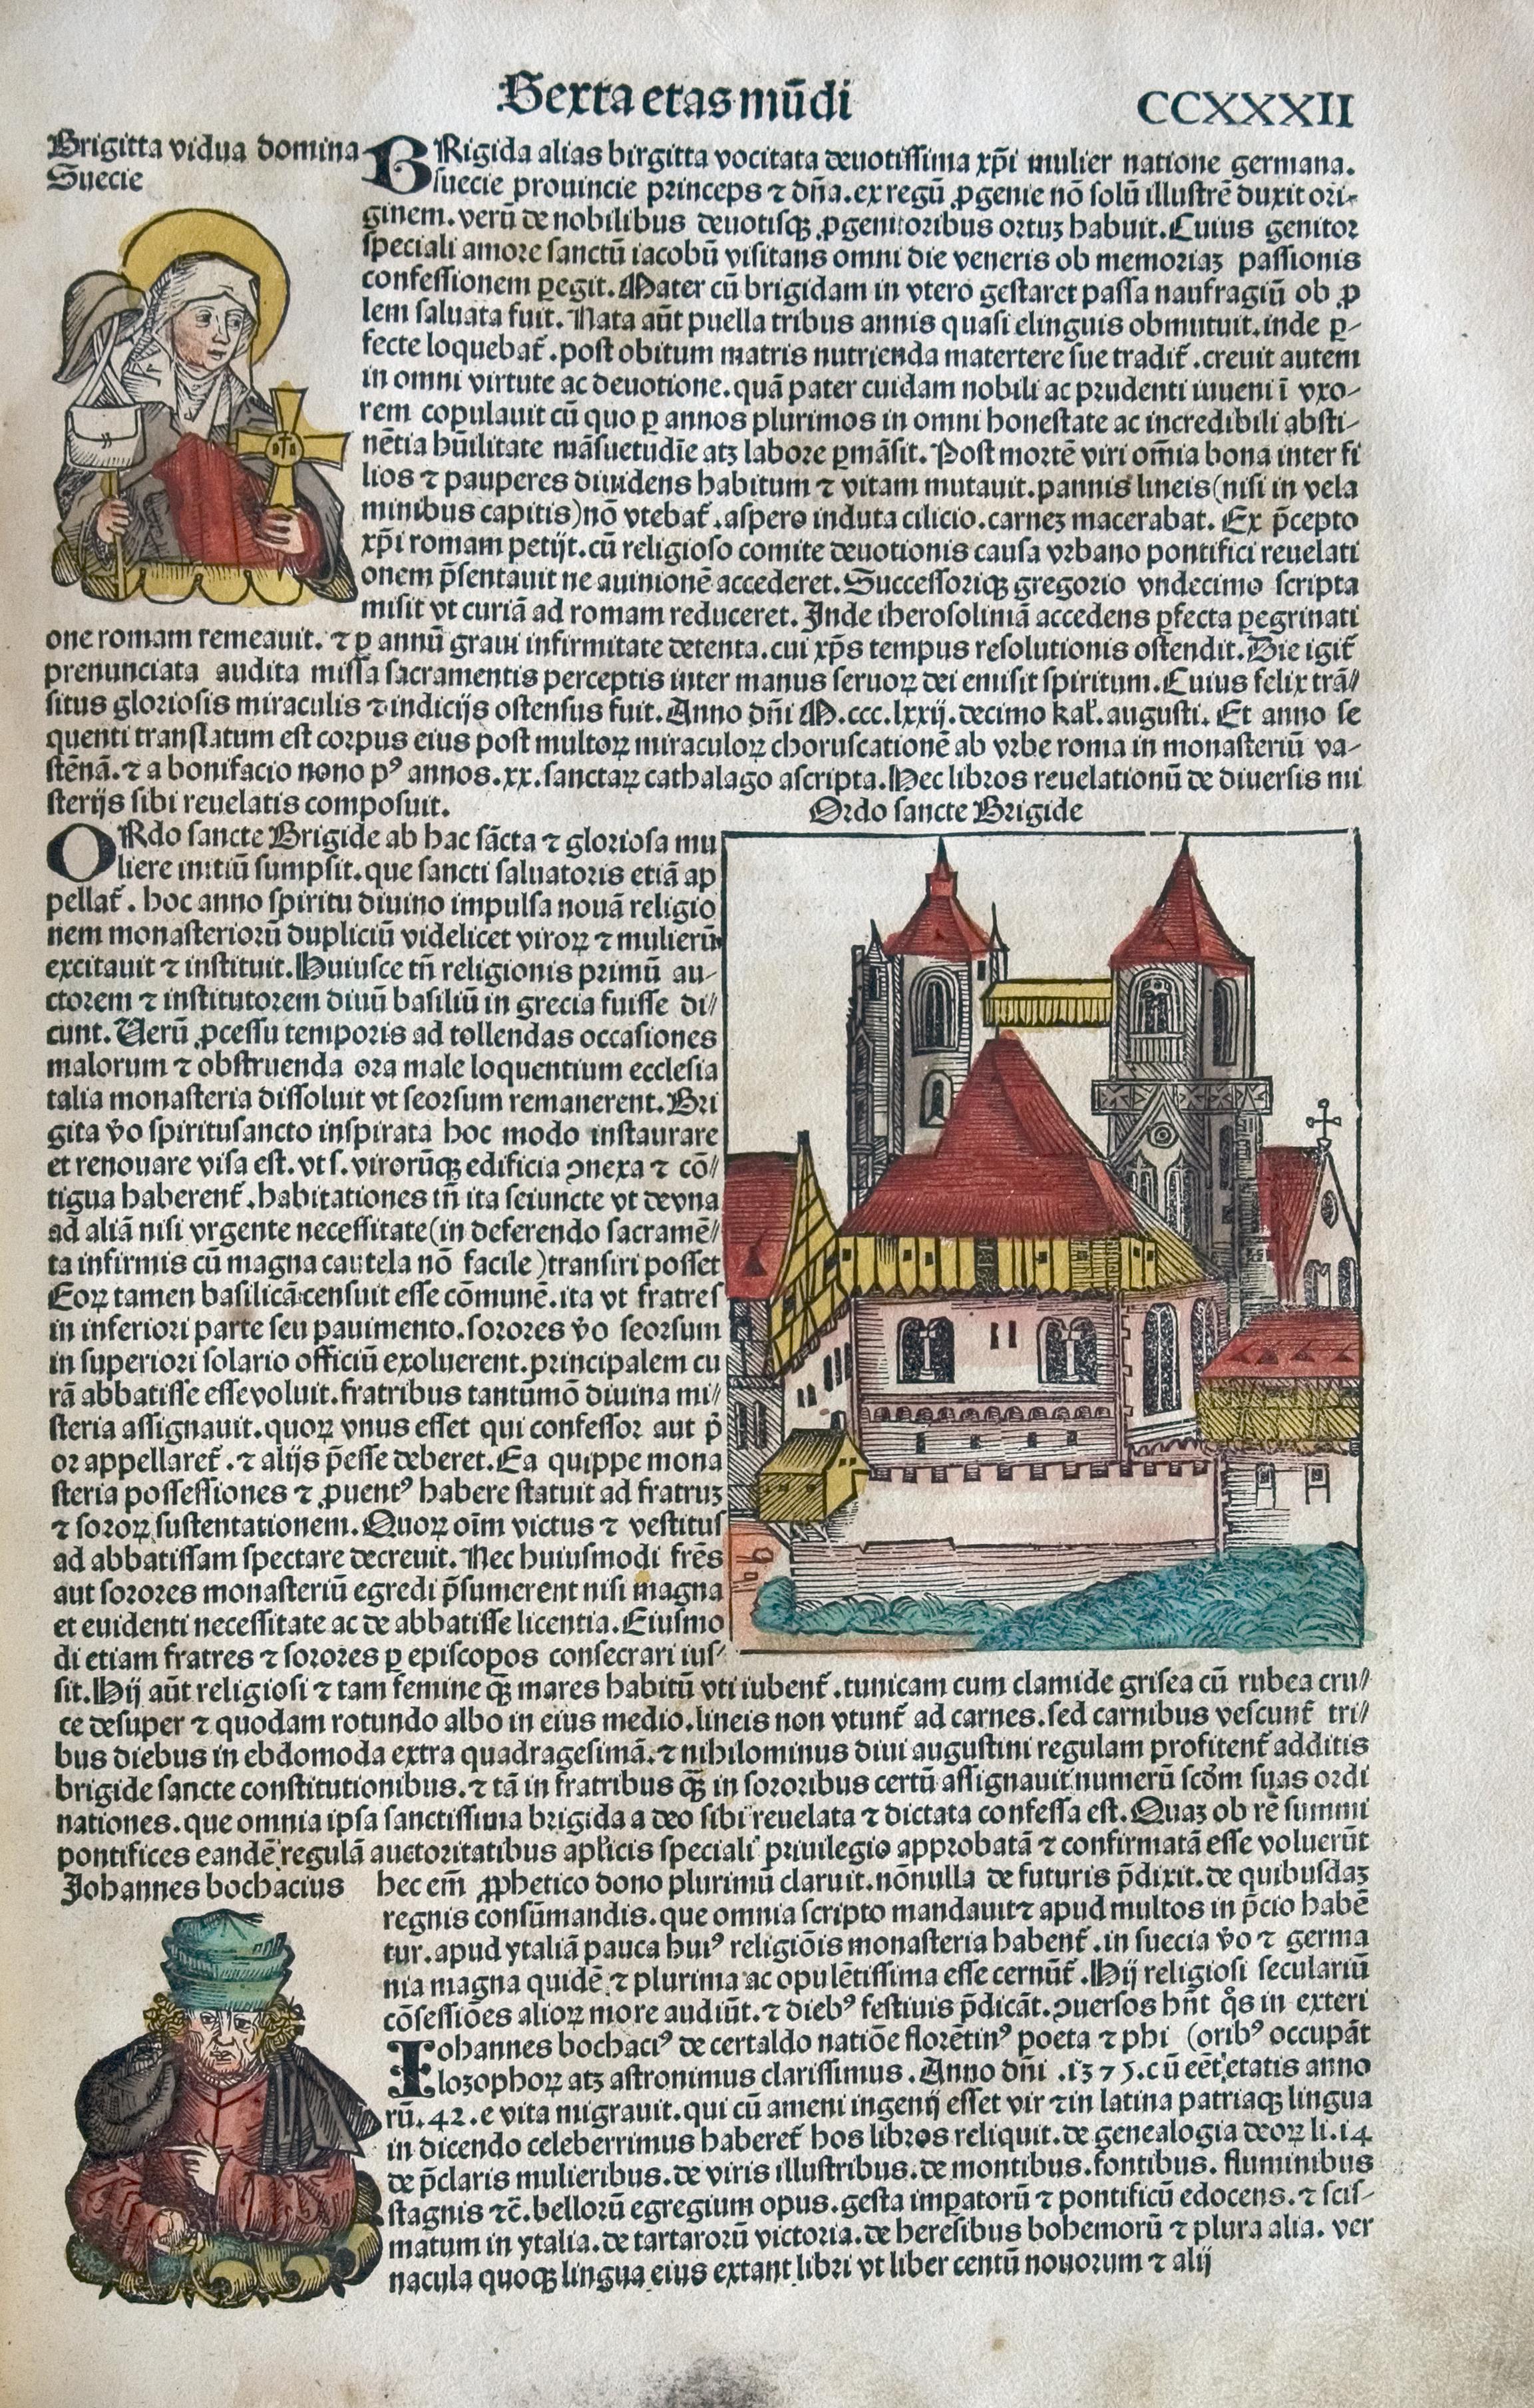 Sexta etas mūdi
CCXXXII
Brigitta vidua domina
Suecie
BRigida alias birgitta vocitata deuotissima xp̄i mulier natione germana.
suecie prouincie princeps ⁊ dn̄a. ex regū ꝓgenie nō solū illustrē duxit ori-
ginem. verū de nobilibus deuotisqꝫ ꝓgenitoribus ortuꝫ habuit. Cuius genitor
speciali amore sanctū iacobū visitans omni die veneris ob memoriaꝫ passionis
confessionem ꝑegit. Mater cū brigidam in vtero gestaret passa naufragiū ob ꝓ
lem saluata fuit. Nata aūt puella tribus annis quasi elinguis obmutuit. inde ꝑ-
fecte loquebat̄. post obitum matris nutrienda matertere sue tradit̄. creuit autem
in omni virtute ac deuotione. quā pater cuidam nobili ac prudenti iuueni ī vxo-
rem copulauit cū quo ꝑ annos plurimos in omni honestate ac incredibili absti-
nētia hūilitate māsuetudīe atqꝫ labore ꝑmāsit. Post mortē viri om̄ia bona inter fi
lios ⁊ pauperes diuidens habitum ⁊ vitam mutauit. pannis lineis (nisi in vela
minibus capitis) nō vtebat̄. aspero induta cilicio. carneꝫ macerabat. Ex p̄cepto
xp̄i romam petijt. cū religioso comite deuotionis causa vrbano pontifici reuelati
onem p̄sentauit ne auinionē accederet. Successoriqꝫ gregorio vndecimo scripta
misit vt curiā ad romam reduceret. Inde iherosolimā accedens ꝑfecta ꝑegrinati
one romam remeauit. ⁊ ꝑ annū graui infirmitate detenta. cui xp̄s tempus resolutionis ostendit. Die igit̄
prenunciata audita missa sacramentis perceptis inter manus seruoꝝ dei emisit spiritum. Cuius felix trā/
situs gloriosis miraculis ⁊ indicijs ostensus fuit. Anno dn̄i M.ccc.lxxij. decimo kal̄. augusti. Et anno se
quenti translatum est corpus eius post multoꝝ miraculoꝝ choruscationē ab vrbe roma in monasteriū va-
stēnā. ⁊ a bonifacio nono pꝰ annos. xx. sanctaꝝ cathalago ascripta. Hec libros reuelationū de diuersis mi
sterijs sibi reuelatis composuit.
Ordo sancte Brigide
ORdo sancte Brigide ab hac sācta ⁊ gloriosa mu
liere initiū sumpsit. que sancti saluatoris etiā ap
pellat̄. hoc anno spiritu diuino impulsa nouā religio
nem monasteriorū dupliciū videlicet viroꝝ ⁊ mulierū
excitauit ⁊ instituit. Huiusce tn̄ religionis primū au-
ctorem ⁊ institutorem diuū basiliū in grecia fuisse di/
cunt. Uerū ꝓcessu temporis ad tollendas occasiones
malorum ⁊ obstruenda ora male loquentium ecclesia
talia monasteria dissoluit vt seorsum remanerent. Bri
gita v̄o spiritusancto inspirata hoc modo instaurare
et renouare visa est. vt s. virorūqꝫ edificia ꝯnexa ⁊ cō/
tigua haberent̄. habitationes tn̄ ita seiuncte vt de vna
ad aliā nisi vrgente necessitate (in deferendo sacramē/
ta infirmis cū magna cautela nō facile) transiri posset
Eoꝝ tamen basilicā censuit esse cōmunē. ita vt fratres
in inferiori parte seu pauimento. sorores v̄o seorsum
in superiori solario officiū exoluerent. principalem cu
rā abbatisse esse voluit. fratribus tantūmō diuina mi/
steria assignauit. quoꝝ vnus esset qui confessor aut p̄
or appellaret̄. ⁊ alijs p̄esse deberet. Ea quippe mona
steria possessiones ⁊ ꝓuentꝰ habere statuit ad fratruꝫ
⁊ soroꝝ sustentationem. Quoꝝ oīm victus ⁊ vestitus
ad abbatissam spectare decreuit. Nec huiusmodi frēs
aut sorores monasteriū egredi p̄sumerent nisi magna
et euidenti necessitate ac de abbatisse licentia. Eiusmo
di etiam fratres ⁊ sorores ꝑ episcopos consecrari ius-
sit. Hij aūt religiosi ⁊ tam femine qꝫ̄ mares habitū vti iubent̄. tunicam cum clamide grisea cū rubea cru/
ce desuper ⁊ quodam rotundo albo in eius medio. lineis non vtunt̄ ad carnes. sed carnibus vescunt̄ tri/
bus diebus in ebdomoda extra quadragesimā. ⁊ nihilominus diui augustini regulam profitent̄ additis
brigide sancte constitutionibus. ⁊ tā in fratribus qꝫ̄ in sororibus certū assignauit numerū scd̄m suas ordi
nationes. que omnia ipsa sanctissima brigida a deo sibi reuelata ⁊ dictata confessa est. Quaꝫ ob rē summi
pontifices eandē regulā auctoritatibus apl̄icis speciali priuilegio approbatā ⁊ confirmatā esse voluerūt
Johannes bochacius
hec em̄ ꝓphetico dono plurimū claruit. nōnulla de futuris p̄dixit. de quibusdaꝫ
regnis consūmandis. que omnia scripto mandauit ⁊ apud multos in p̄cio habē
tur. apud ytaliā pauca huiꝰ religiōis monasteria habent̄. in suecia v̄o ⁊ germa
nia magna quidē ⁊ plurima ac opulētissima esse cernūt̄. Hij religiosi seculariū
cōfessiōes alioꝝ more audiūt. ⁊ diebꝰ festiuis p̄dicāt. ꝯuersos hn̄t q̊s in exteri
Iohannes bochaciꝰ de certaldo natiōe florētinꝰ poeta ⁊ phi (oribꝰ occupāt
lozophoꝝ atqꝫ astronimus clarissimus. Anno dn̄i .1375. cū eēt etatis anno
rū. 42. e vita migrauit. qui cū ameni ingenij esset vir ⁊ in latina patriaqꝫ lingua
in dicendo celeberrimus haberet̄ hos libros reliquit. de genealogia deoꝝ li. 14.
de p̄claris mulieribus. de viris illustribus. de montibus. fontibus. fluminibus
stagnis ⁊c̄. bellorū egregium opus. gesta imꝑatorū ⁊ pontificū edocens. ⁊ scis-
matum in ytalia. de tartarorū victoria. de heresibus bohemorū ⁊ plura alia. ver
nacula quoqꝫ lingua eius extant libri vt liber centū nouorum ⁊ alij